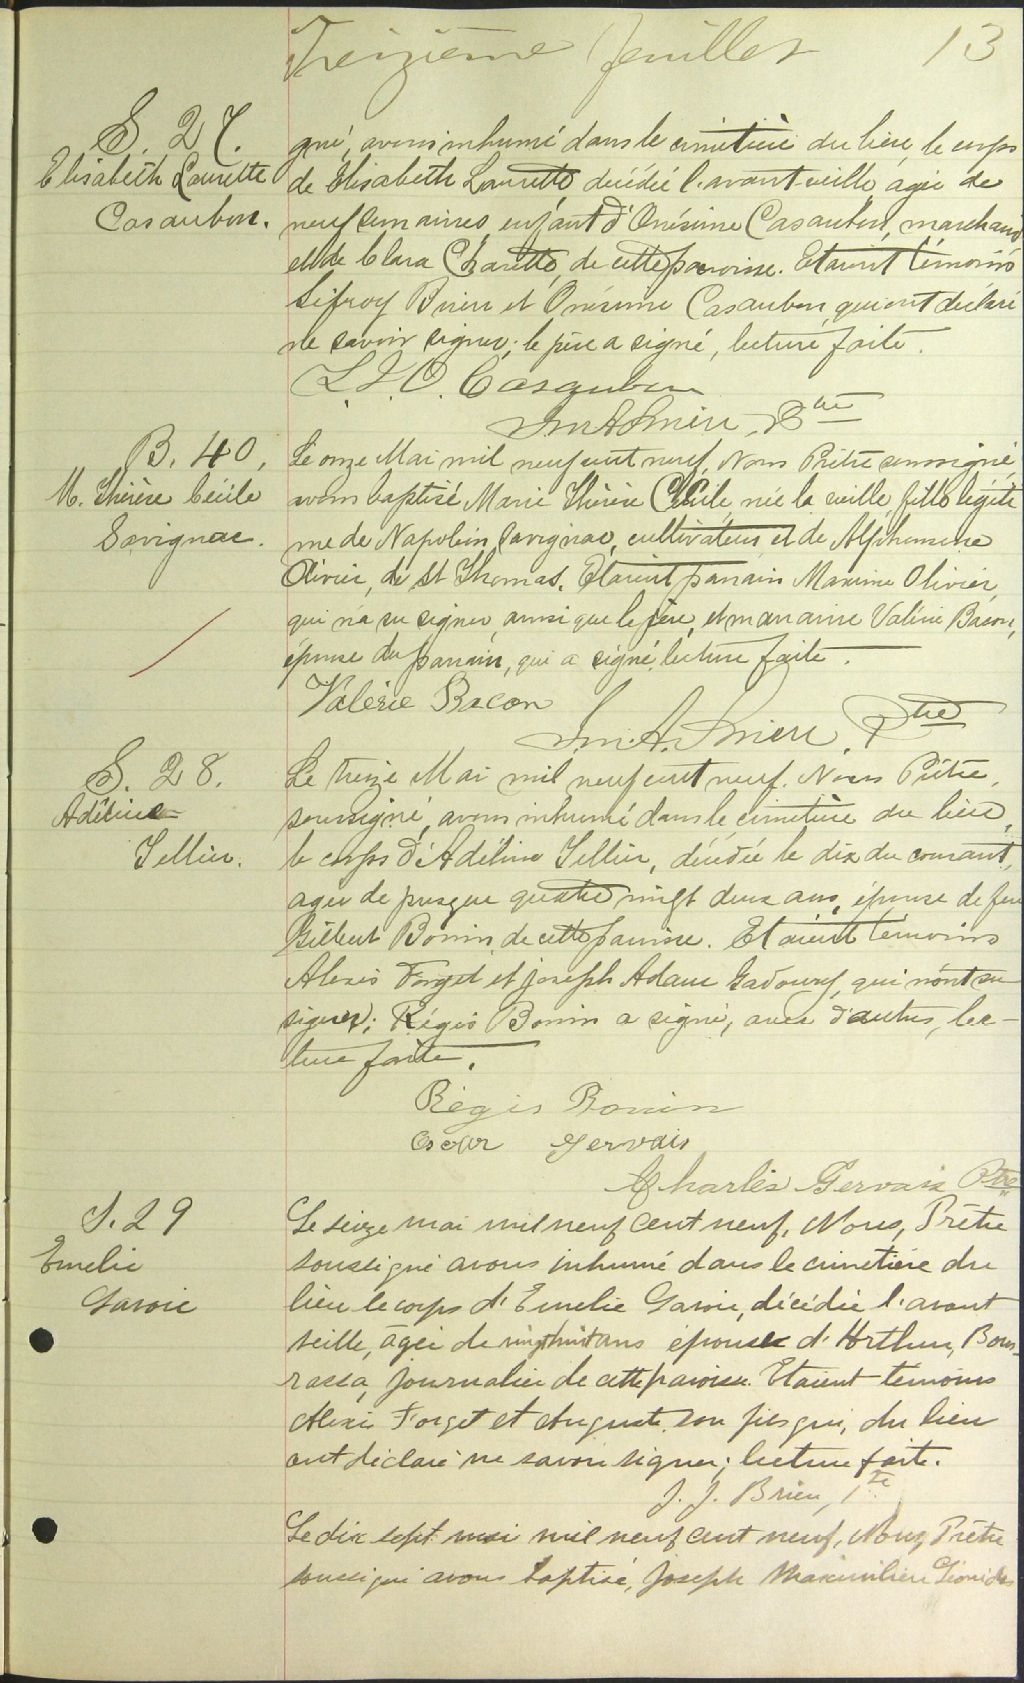 Treizième feuillet 13
S. 27.
Elisabeth Laurette
Casaubon.
gné, avons inhumé dans le cimetière du lieu, le corps
de Elisabeth Laurette, décédée l'avant-veille, agée de
neuf semaines, enfant d'Onésime Casaubon, marchand
et de Clara Charette, de cette paroisse. Etaient témoins
Sifroy Brien et Onésime Casaubon, qui ont déclaré
ne savoir signer; le père a signé, lecture faite.
L. J. O. Casaubon
Ptre
B. 40,
M. Thérèse Cécile
Savignac.
Le onze Mai mil neuf cent neuf, Nous Prêtre soussigné,
avons baptisé Marie Thérèse Cécile, née la veille, fille légiti
me de Napoléon Savignac, cultivateur et de Alphonsine
Olivier, de St Thomas. Etaient parrain Maxime Olivier,
qui n'a su signer, ainsi que le père, et marraine Valérie Bacon,
épouse du parrain, qui a signé, lecture faite.
Valérie Bacon
Ptre
S. 28.
Adéline
Tellier.
Le treize Mai mil neuf cent neuf. Nous Prêtre,
soussigné, avons inhumé dans le cimetière du lieu,
le corps d'Adéline Tellier, décédée le dix du courant,
agée de presque quatre vingt deux ans, épouse de feu
Gilbert Bonin, de cette paroisse. Etaient témoins
Alexis Forget et Joseph Adam Gadoury, qui n'ont su
signer; Régis Bonin a signé, avec d'autres, lec-
ture faite.
Régis Bonin
Oscar Gervais
Charles Gervais Ptre
S. 29
Emelie
Savoie
Le seize mai mil neuf cent neuf, Nous, Prêtre
soussigné avons inhumé dans le cimetière du
lieu le corps d'Emelie Savoie, décédée l'avant
veille, âgée de vingt huit ans épouse d'Arthur, Bour-
rassa, journalier de cette paroisse. Etaient témoins
Alexis Forget et Auguste son fils qui, du lieu
ont déclaré ne savoir signer; lecture faite.
J. J. Brien, Ptre
Le dix sept mai mil neuf cent neuf, Nous, Prêtre
soussigné avons baptisé, Joseph Maximilien Léonidas